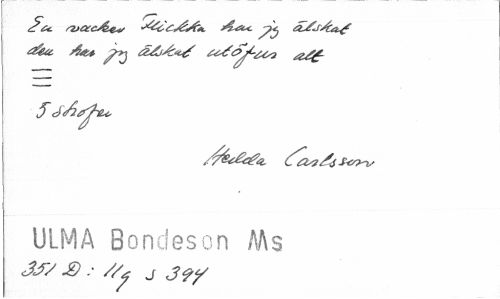 En vacker Flickka har jg älskat
den har jg älskat utöfver alt
5 strofer
Hulda Carlsson
ULMA Bondeson Ms
351 D: 11q s 394